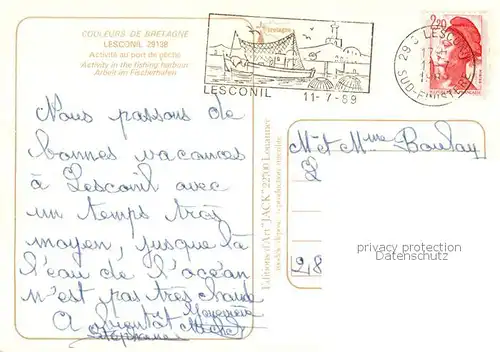 COULEURS DE BRETAGNE
LESCONIL 29138
Activité au port de pêche
Activity in the fishing harbour
Arbeit im Fischerhafen
Bretagne
LESCONIL 11-7-89
LESCONIL
SUD-FINISTERE
2,20
Nous passons de
bonnes vacances
à Lesconil avec
un temps très
moyen, jusque là
l'eau de l'océan
n'est pas très chaude
A bientôt
Stéphane
Editions d'Art "JACK" 22700 Louannec
modèle déposé - reproduction interdite
M et Mme Boulay
28
privacy protection
Datenschutz